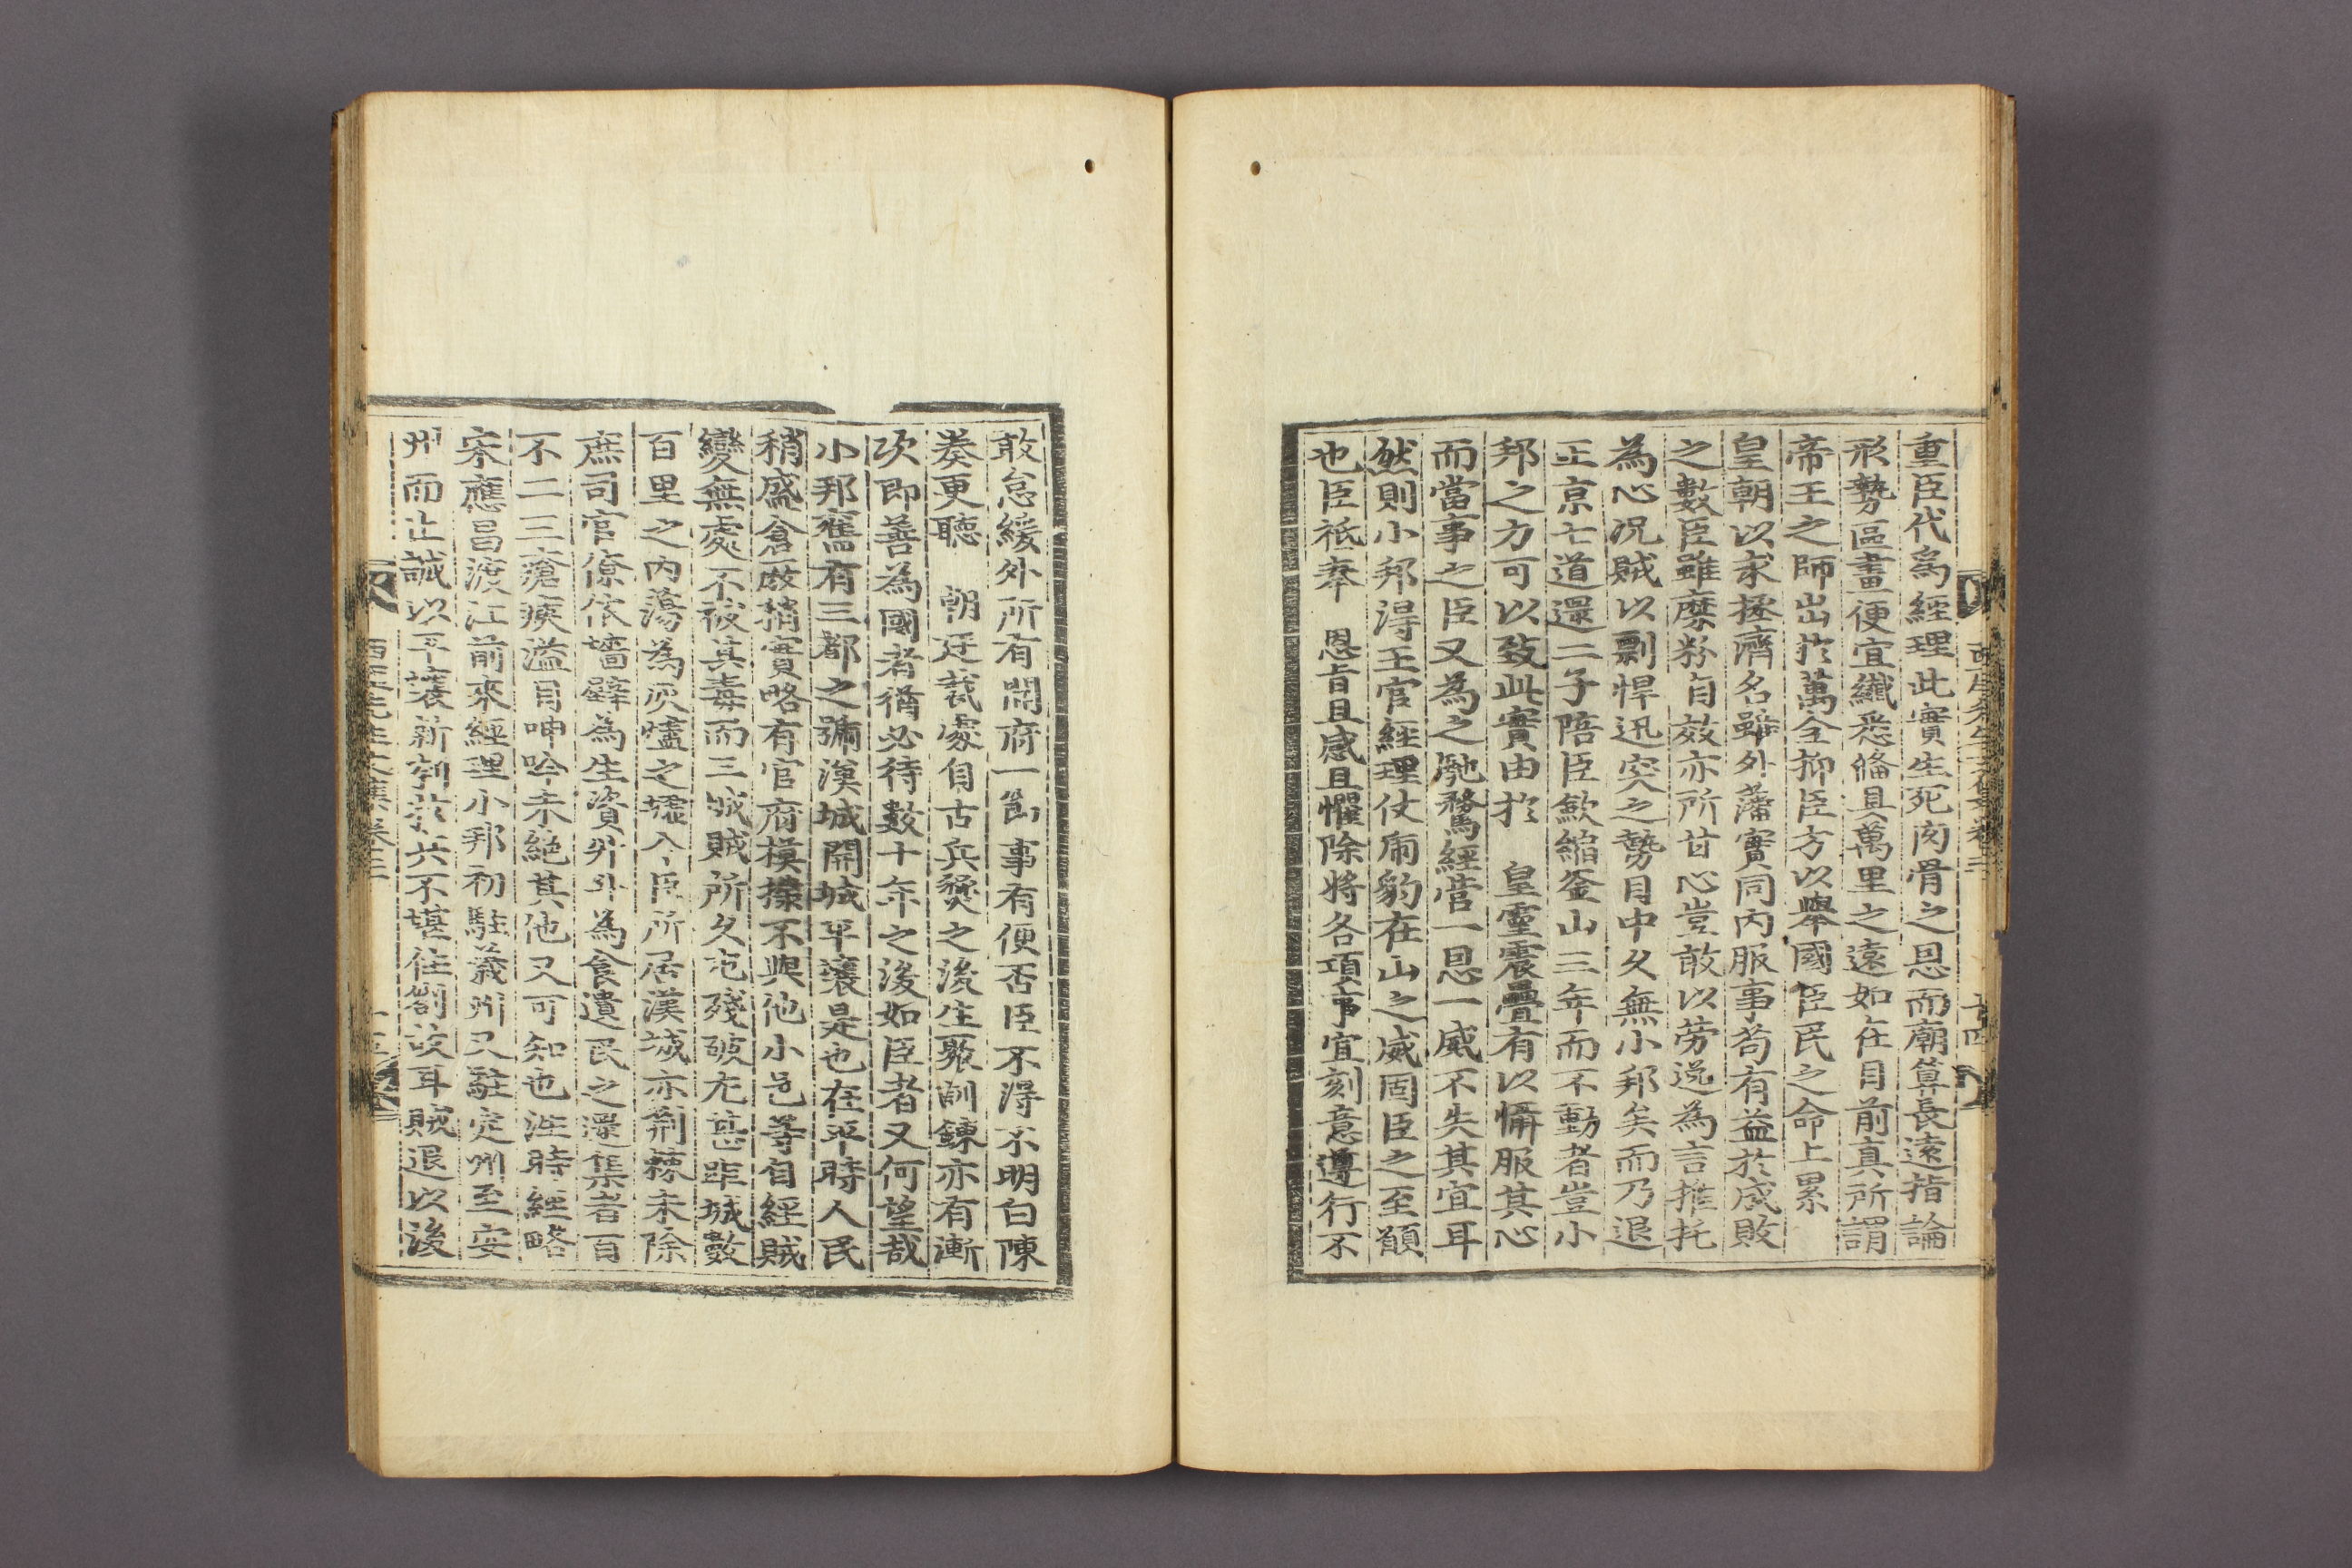 重臣代爲經理此實生死肉骨之恩而廟筭長遠指論
形勢區畫便宜纖悉備具萬里之遠如在目前真所謂
帝王之師出於萬全抑臣方以舉國臣民之命上累
皇朝以求拯濟名雖外藩實同内服事苟有益於成敗
之數臣雖糜粉自效亦所甘心豈敢以勞逸為言推托
為心况賊以剽悍迅突之勢目中久無小邦矣而乃退
王京七道還二子陪臣歛縮釜山三年而不動者豈小
邦之力可以致此實由於 皇靈震疊有以慴服其心
而當事之臣又為之馳騖經営一恩一威不失其宜耳
然則小邦得王官經理仗虎豹在山之威固臣之至願
也臣祗奉 恩旨且感且懼除將各項事宜刻意遵行不
敢怠緩外所有開府一節事有便否臣不得不明白陳
奏更聽 朝廷裁處自古兵燹之後生聚訓鍊亦有漸
次即善為國者猶必待數十年之後如臣者又何望哉
小邦舊有三都之號漢城開城平壤是也在平時人民
稍盛倉廒稍實略有官府模樣不與他小邑等自經賊
變無處不被其毒而三城賊所久屯殘破尤甚距城數
百里之内蕩為灰燼之墟今臣所居漢城亦荆棘未除
庶司官僚依墻壁為生資升斗為食遺民之還集者百
不二三瘡痍滿目呻吟未絶其他又可知也往時經略
宋應昌渡江前來經理小邦初駐義州又駐定州至安
州而止誠以平壤新剏於六不堪住劄故耳賊退以後
西厓先生文集卷三